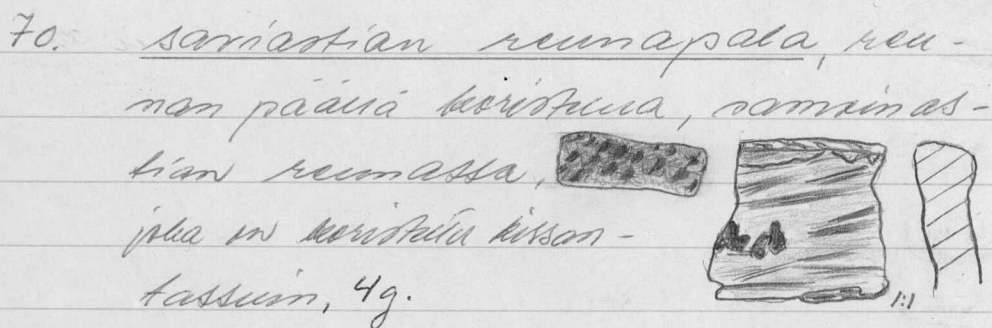 70. saviastian reunapala, reu-
nan päällä koristelua, samoin as-
tian reunassa,
joka on koristeltu kissan-
tassuin, 4g.
1:1